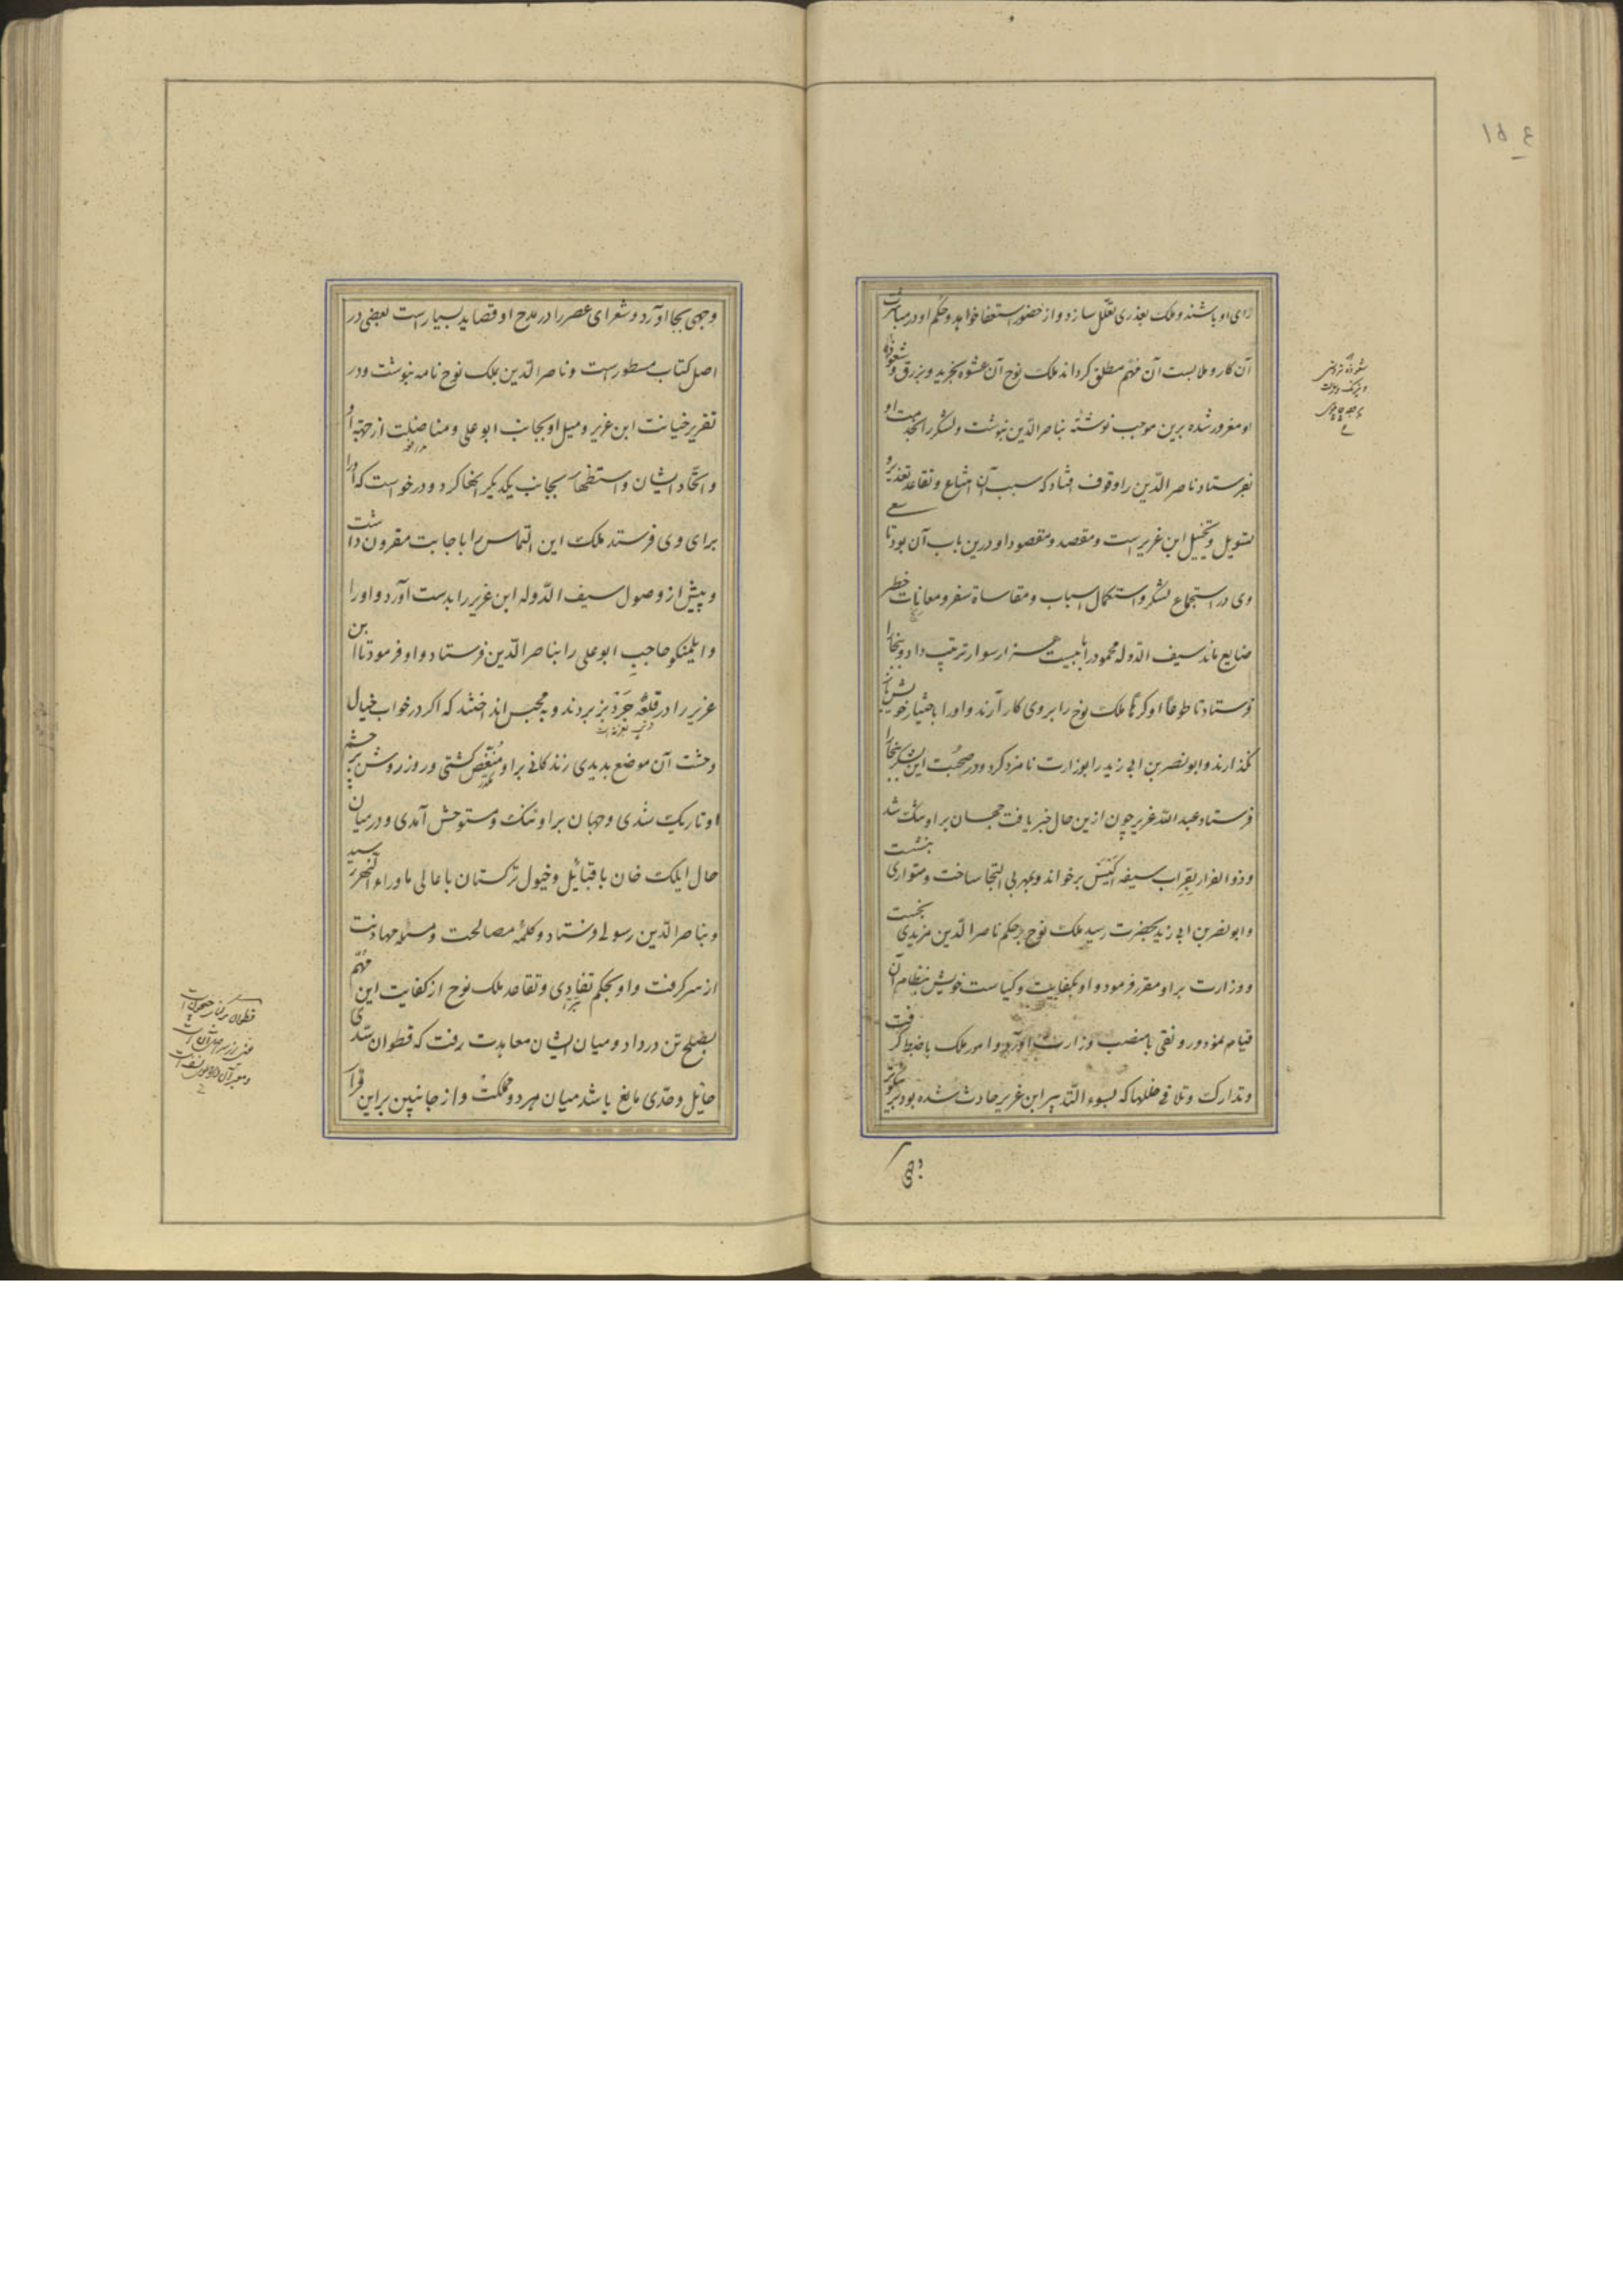 ۱۵۴
رای او باشند و ملک بعذری تعلّل سازد و از حضور استعفا خواهد و حکم او در مباشرت
آن کار و ملابست آن مهمّ مطلق کرداند ملک نوح آن عشوه بخرید و بزرق و شعوذه
او مغرور شده برین موجب نوشته بناصر الدّین نبوشت و لشکر را بخدمت او
بفرستاد ناصر الدّین را وقوف افتاد که سبب آن امتناع و تقاعد تعذیر و
تسویل و تخییل ابن عزیر است و مقصد و مقصود او درین باب آن بود تا سعی
وی در استجماع لشکر و استکمال اسباب و مقاساة سفر و معانات خطر
ضایع ماند سیف الدّوله محمود را با بیست هزار سوار ترتیب داد و ببخارا
فرستاد تا طوعاً او کرهاً ملک نوح را بروی کار آرند و او را باختیار خویش باز
نکذارند و ابو نصر بن ابی زید را بوزارت نامزد کرد و در صحبت این لشکر ببخارا
فرستاد عبد اللّه عزیر چون ازین حال خبر یافت جهان بر او تنک شد
و ذو الفرار بقراب سیفه اکیس برخواند و بهربی التجا ساخت و متواری بنشست
و ابو نصر بن ابی زید بحضرت رسید ملک نوح بر حکم ناصر الدّین مزیدی نجست
و وزارت بر او مقرر فرمود و او بکفایت و کیاست خویش بنظام آن
قیام نمود و رونقی با منصب وزارت آورد و امور ملک با ضبط کرفت
و تدارک و تلافی خللها که بسوء التّدبیر ابن عزیر حادث شده بود بنیکوتر
وجهی
وجهی بجا آورد و شعرای عصر را در مدح او قصاید بسیار است بعضی در
اصل کتاب مسطور است و ناصر الدّین بملک نوح نامه نبوشت و در
تقریر خیانت ابن عزیر و میل او بجانب ابو علی و مناضلت از جهة او
و اتّحاد ایشان و استظهار بجانب یکدیکر انها کرد و درخواست که او را
برای وی فرستد ملک این التماس را با جابت مقرون داشت
و پیش از وصول سیف الدّوله ابن عزیر را بدست آورد و او را
و ایلمنکو حاجب ابو علی را بناصر الدّین فرستاد و او فرمود تا ابن
عزیر را در قلعه جردیز بردند و بمحبس انداختند که اکر در خواب خیال
وحشت آن موضع بدیدی زندکانی بر او منغّص کشتی و روز روشن بر چشم
او تاریک شدی و جهان بر او تنک و مستوحش آمدی و در میان
حال ایلک خان با قبائل و خیول ترکستان با عالی ماوراء النّهر رسید
و بناصر الدّین رسولی فرستاد و کلمه مصالحت و مسئله مهادنت
از سر کرفت و او بحکم تفادی و تقاعد ملک نوح از کفایت این مهمّ
بصلح تن در داد و میان ایشان معاهدت برفت که قطوان سدّی
حایل و حدّی مانع باشد میان هر دو مملکت و از جانبین بر این قرار